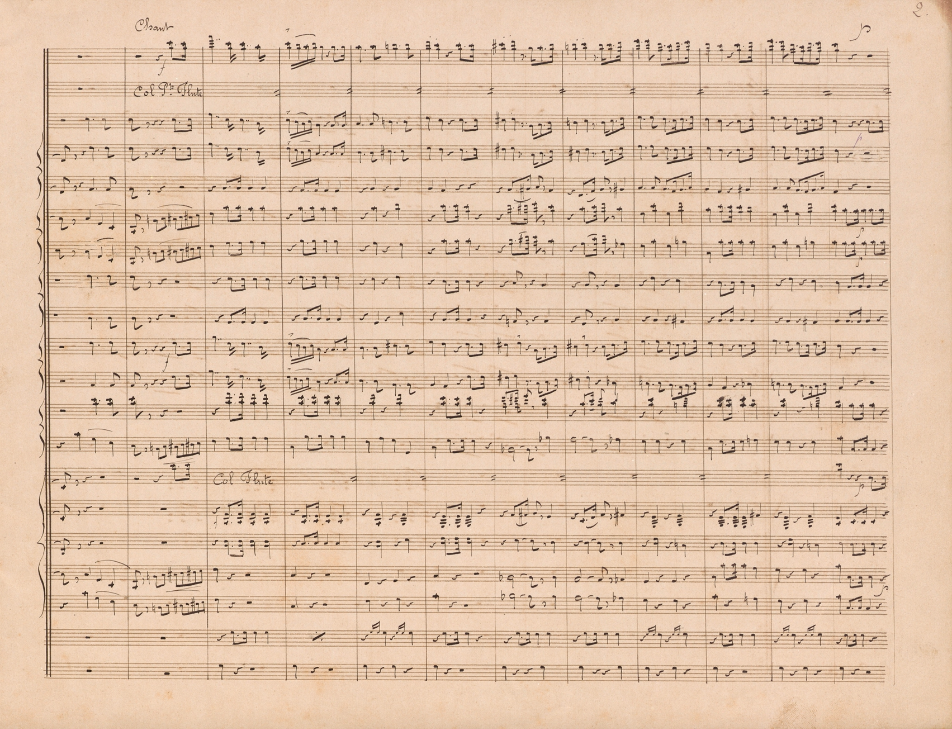 2.
Chant
Col Pte Flute
Col Flute